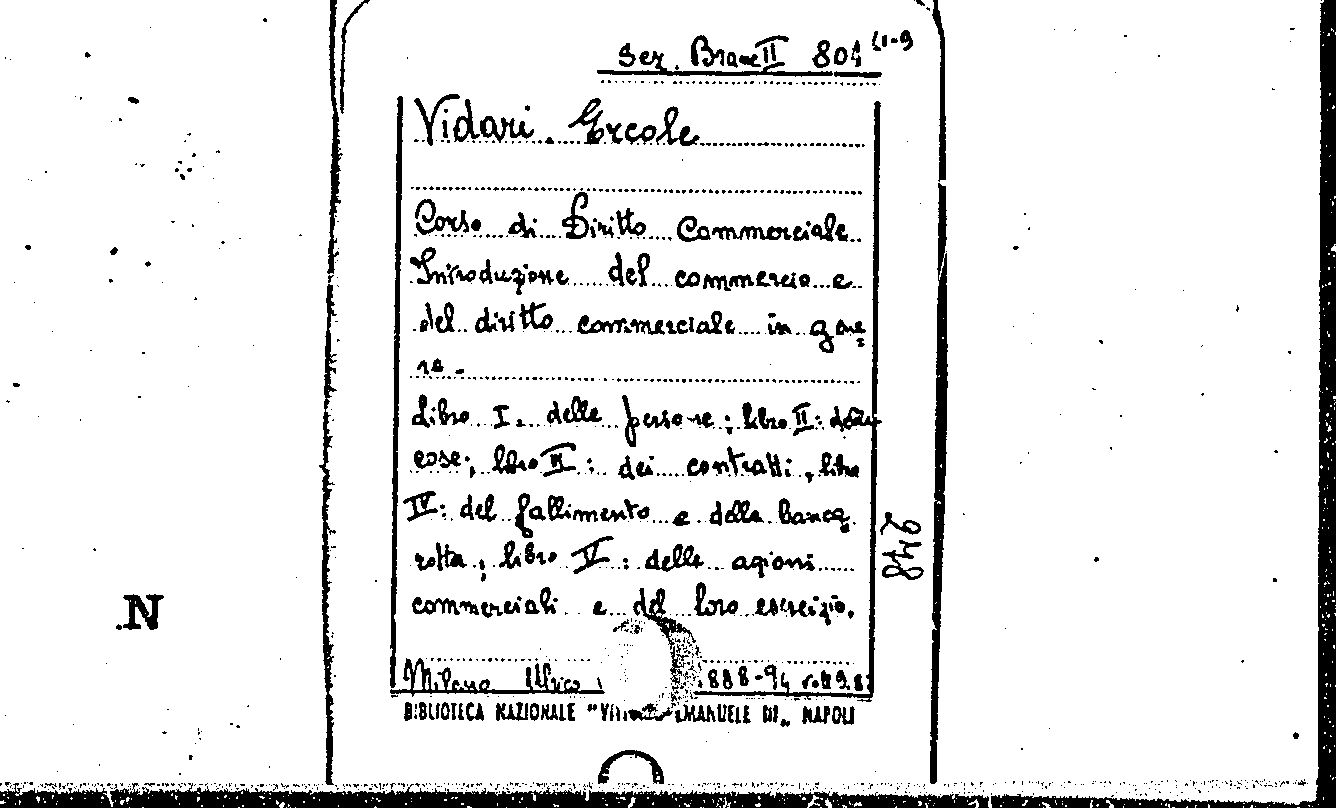 Sez. Branc II 804 (1-9
Vidari. Ercole
Corso di Diritto Commerciale
Introduzione del commercio e
del diritto commerciale in gene
re.
Libro I. delle persone; libro II: delle
cose; libro III: dei contratti, libro
IV: del fallimento e della bancq
rotta; libro V: delle azioni
commerciali e del loro esercizio.
Milano Ulrico 888-94
BIBLIOTECA NAZIONALE "VITT EMANUELE III„ NAPOLI
248
N